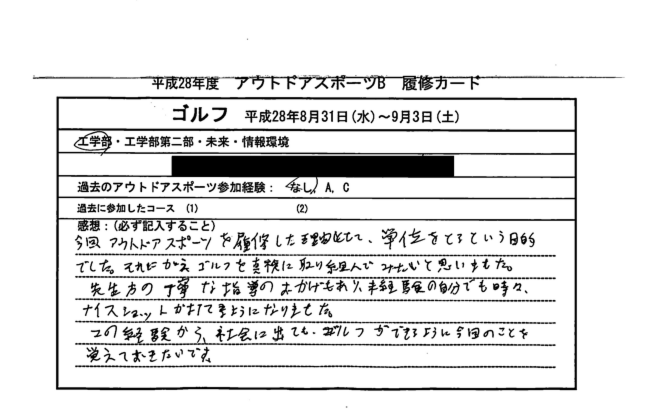 平成28年度 アウトドアスポーツB 履修カード
ゴルフ 平成28年8月31日(水)～9月3日(土)
工学部・工学部第二部・未来・情報環境
過去のアウトドアスポーツ参加経験： なし, A, C
過去に参加したコース (1) (2)
感想：(必ず記入すること)
今回 アウトドアスポーツを履修した理由として、単位をとるという目的
でした。それにかえ ゴルフを真検に取り組んで みたいと思いました。
先生方の丁寧な指導のおかげもあり、未経験の自分でも時々、
ナイスショットが打てるようになりました。
この経験から、社会に出ても、ゴルフができるように今回のことを
覚えておきたいです。